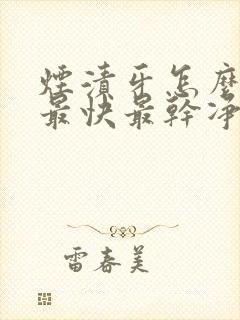 煙漬牙怎麼
最快最幹凈
雷春美